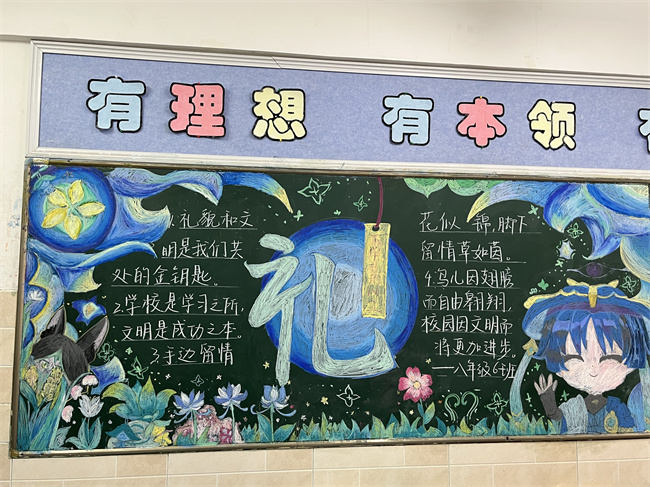 有理想 有本领 有
1.礼貌和文
明是我们共
处的金钥匙。
2.学校是学习之所,
文明是成功之本。
3.手边留情
礼
花似锦,脚下
留情草如茵。
4.鸟儿因翅膀
而自由翱翔,
校园因文明而
将更加进步。
——八年级6班